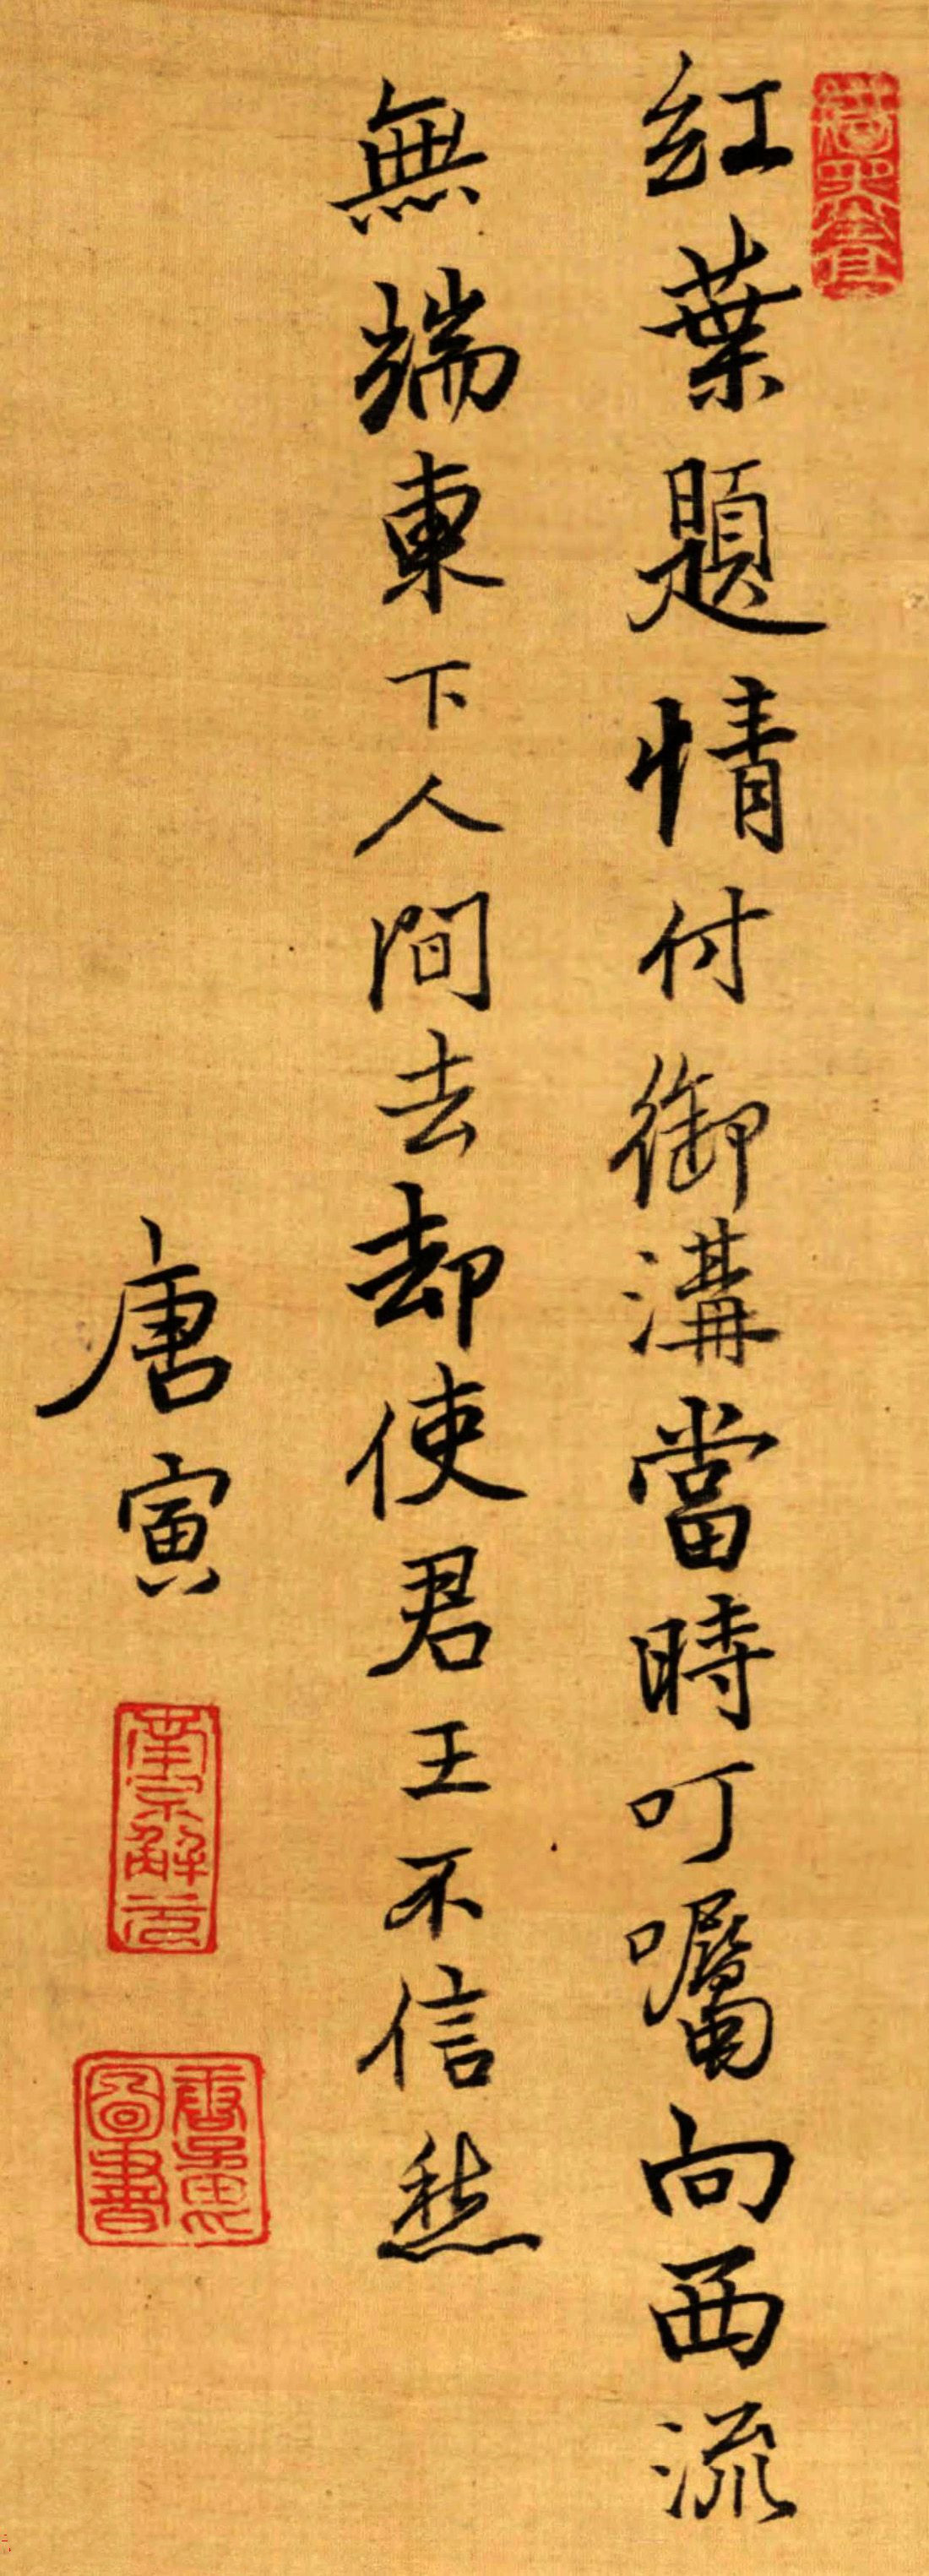 紅葉題情付御溝當時叮囑向西流
無端東下人間去却使君王不信愁
唐寅
南京解元
唐居士圖書